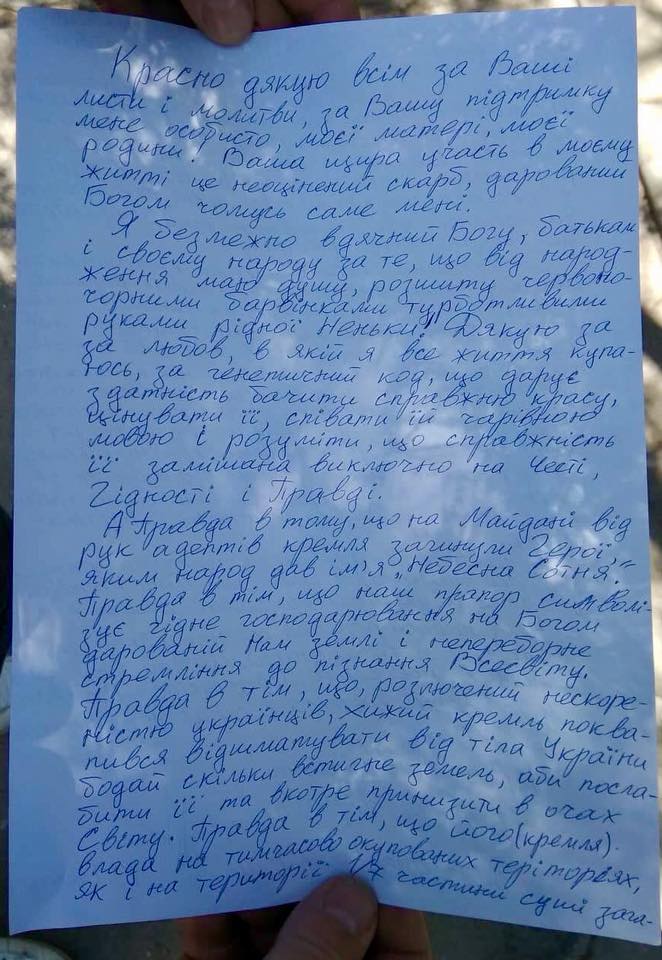 Красно дякую всім за Ваші
листи і молитви, за Вашу підтримку
мене особисто, моєї матері, моєї
родини. Ваша щира участь в моєму
житті це неоцінений скарб, дарований
Богом чомусь саме мені.
Я безмежно вдячний Богу, батькам
і своєму народу за те, що від народ-
ження маю душу, розшиту червоно-
чорними барвінками турботливими
руками рідної Неньки. Дякую за
за любов, в якій я все життя купа-
юсь, за генетичний код, що дарує
здатність бачити справжню красу,
цінувати її, співати їй чарівною
мовою і розуміти, що справжність
її замішана виключно на Честі,
Гідності і Правді.
А Правда в тому, що на Майдані від
рук адептів кремля загинули Герої,
яким народ дав ім'я „Небесна Сотня".
Правда в тім, що наш прапор символі-
зує гідне господарювання на Богом
дарованій Нам землі і непереборне
стремління до пізнання Всесвіту.
Правда в тім, що, розлючений нескоре-
ністю українців, хижий кремль поква-
пився відшматувати від тіла України
бодай скільки встигне земель, аби посла-
бити її та вкотре принизити в очах
Світу. Правда в тім, що його (кремля)
влада на тимчасово окупованих теріторіях,
як і на території 1/7 частини суші зага-